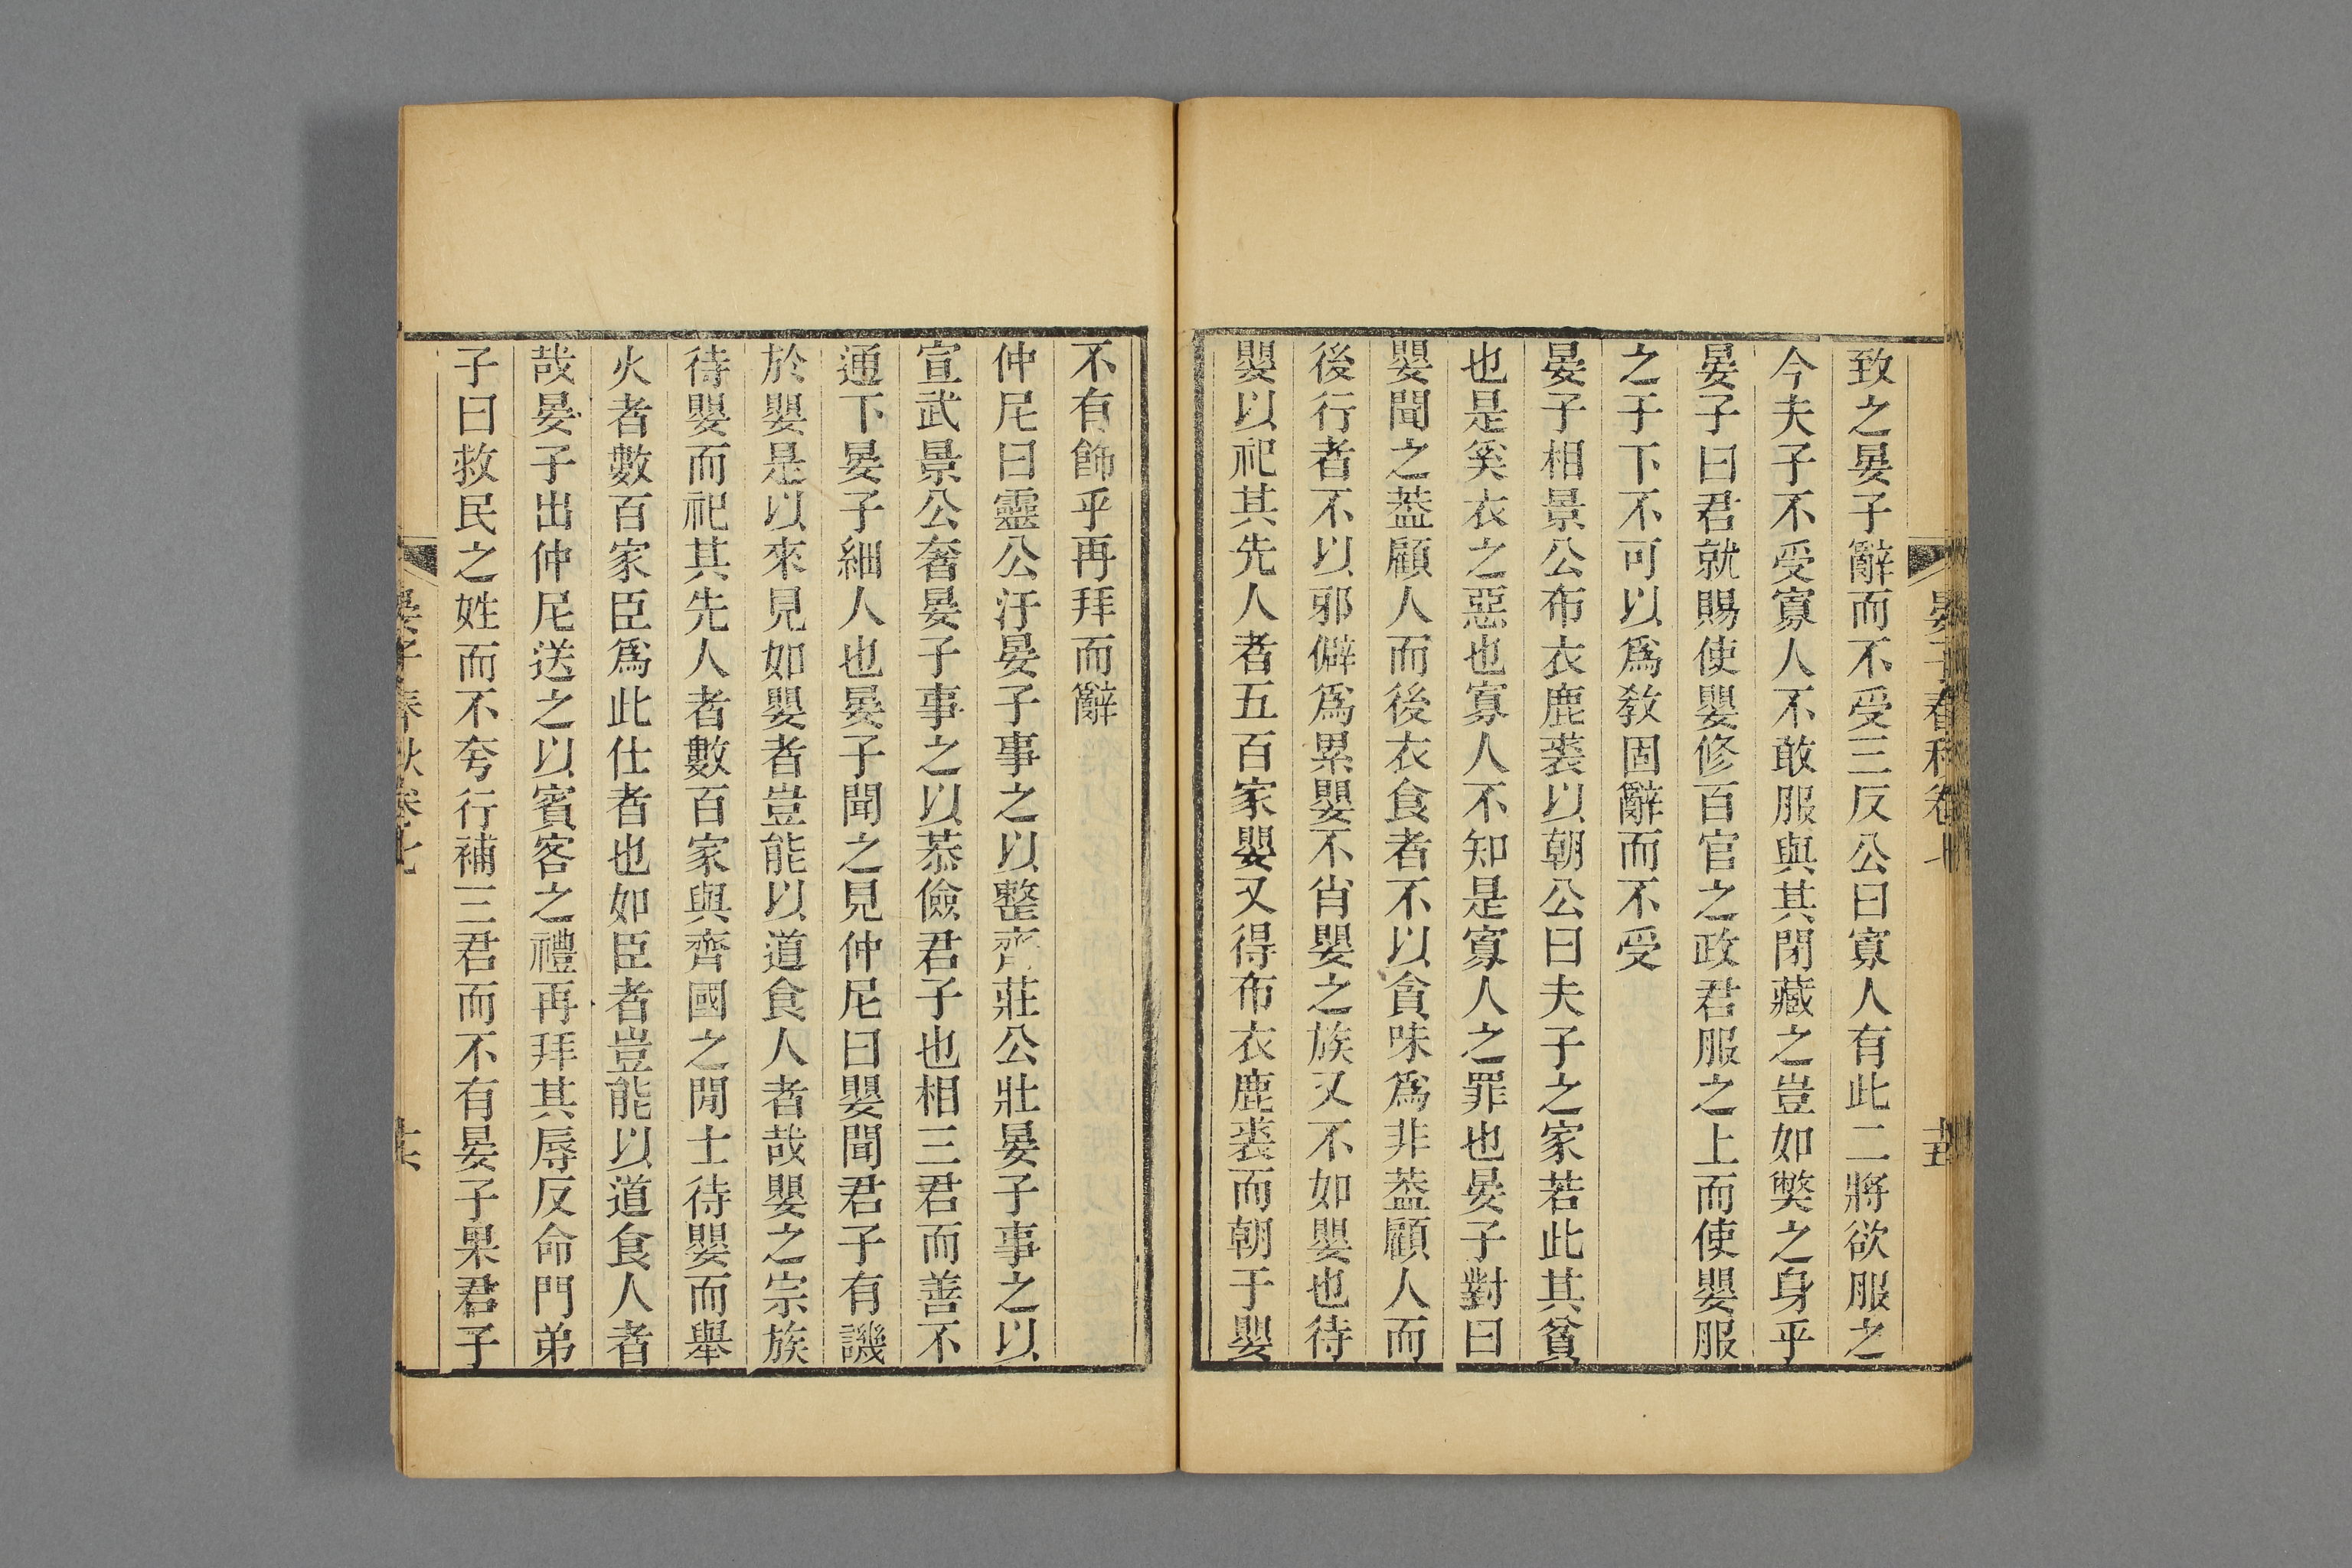 晏子春秋卷七
致之晏子辭而不受三反公曰寡人有此二將欲服之
今夫子不受寡人不敢服與其閉藏之豈如獘之身乎
晏子曰君就賜使嬰修百官之政君服之上而使嬰服
之于下不可以爲敎固辭而不受
晏子相景公布衣鹿裘以朝公曰夫子之家若此其貧
也是奚衣之惡也寡人不知是寡人之罪也晏子對曰
嬰聞之葢顧人而後衣食者不以貪味爲非葢顧人而
後行者不以邪僻爲累嬰不肖嬰之族又不如嬰也待
嬰以祀其先人者五百家嬰又得布衣鹿裘而朝于嬰
不有飾乎再拜而辭
仲尼曰靈公汙晏子事之以整齊莊公壯晏子事之以
宣武景公奢晏子事之以恭儉君子也相三君而善不
通下晏子細人也晏子聞之見仲尼曰嬰聞君子有譏
於嬰是以來見如嬰者豈能以道食人者哉嬰之宗族
待嬰而祀其先人者數百家與齊國之閒士待嬰而舉
火者數百家臣爲此仕者也如臣者豈能以道食人者
哉晏子出仲尼送之以賓客之禮再拜其辱反命門弟
子曰救民之姓而不夸行補三君而不有晏子果君子
晏子春秋卷七